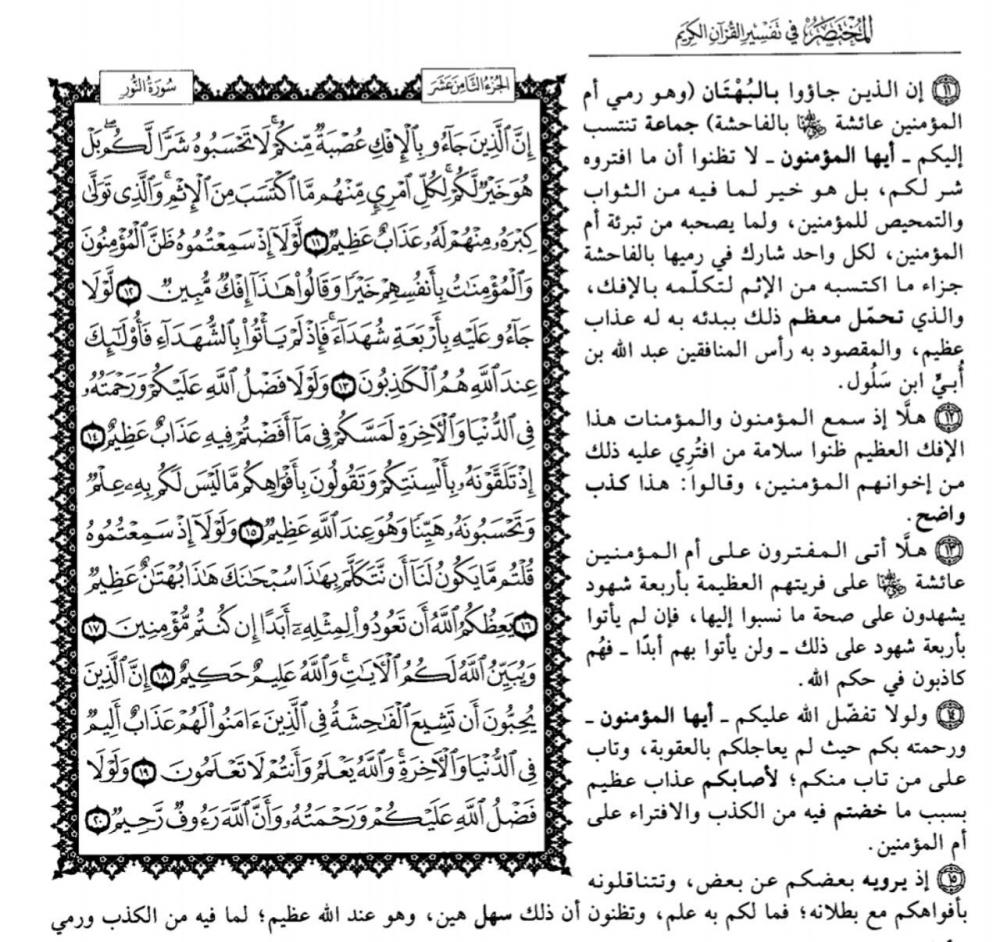 المختصر في تفسير القرآن الكريم
⑪ إن الذين جاؤوا بالبُهْتَان (وهو رمي أم
المؤمنين عائشة رضي الله عنها بالفاحشة) جماعة تنتسب
إليكم ـ أيها المؤمنون ـ لا تظنوا أن ما افتروه
شر لكم، بل هو خير لما فيه من الثواب
والتمحيص للمؤمنين، ولما يصحبه من تبرئة أم
المؤمنين، لكل واحد شارك في رميها بالفاحشة
جزاء ما اكتسبه من الإثم لتكلّمه بالإفك،
والذي تحمّل معظم ذلك ببدئه به له عذاب
عظيم، والمقصود به رأس المنافقين عبد الله بن
أُبيٍّ ابن سَلُول.
⑫ هلَّا إذ سمع المؤمنون والمؤمنات هذا
الإفك العظيم ظنوا سلامة من افتُرِي عليه ذلك
من إخوانهم المؤمنين، وقالوا: هذا كذب
واضح.
⑬ هلَّا أتى المفترون على أم المؤمنين
عائشة رضي الله عنها على فريتهم العظيمة بأربعة شهود
يشهدون على صحة ما نسبوا إليها، فإن لم يأتوا
بأربعة شهود على ذلك ـ ولن يأتوا بهم أبدًا ـ فهُم
كاذبون في حكم الله.
⑭ ولولا تفضّل الله عليكم ـ أيها المؤمنون ـ
ورحمته بكم حيث لم يعاجلكم بالعقوبة، وتاب
على من تاب منكم؛ لأصابكم عذاب عظيم
بسبب ما خضتم فيه من الكذب والافتراء على
أم المؤمنين.
⑮ إذ يرويه بعضكم عن بعض، وتتناقلونه
بأفواهكم مع بطلانه؛ فما لكم به علم، وتظنون أن ذلك سهل هين، وهو عند الله عظيم؛ لما فيه من الكذب ورمي
الجزء الثامن عشر
سورة النور
إِنَّ ٱلَّذِينَ جَآءُو بِٱلْإِفْكِ عُصْبَةٌ مِّنكُمْۚ لَا تَحْسَبُوهُ شَرًّا لَّكُمۖ بَلْ
هُوَ خَيْرٌ لَّكُمْۚ لِكُلِّ ٱمْرِئٍ مِّنْهُم مَّا ٱكْتَسَبَ مِنَ ٱلْإِثْمِۚ وَٱلَّذِى تَوَلَّىٰ
كِبْرَهُۥ مِنْهُمْ لَهُۥ عَذَابٌ عَظِيمٌ ⑪ لَّوْلَآ إِذْ سَمِعْتُمُوهُ ظَنَّ ٱلْمُؤْمِنُونَ
وَٱلْمُؤْمِنَٰتُ بِأَنفُسِهِمْ خَيْرًا وَقَالُوا۟ هَٰذَآ إِفْكٌ مُّبِينٌ ⑫ لَّوْلَا
جَآءُو عَلَيْهِ بِأَرْبَعَةِ شُهَدَآءَۚ فَإِذْ لَمْ يَأْتُوا۟ بِٱلشُّهَدَآءِ فَأُو۟لَٰٓئِكَ
عِندَ ٱللَّهِ هُمُ ٱلْكَٰذِبُونَ ⑬ وَلَوْلَا فَضْلُ ٱللَّهِ عَلَيْكُمْ وَرَحْمَتُهُۥ
فِى ٱلدُّنْيَا وَٱلْءَاخِرَةِ لَمَسَّكُمْ فِى مَآ أَفَضْتُمْ فِيهِ عَذَابٌ عَظِيمٌ ⑭
إِذْ تَلَقَّوْنَهُۥ بِأَلْسِنَتِكُمْ وَتَقُولُونَ بِأَفْوَاهِكُم مَّا لَيْسَ لَكُم بِهِۦ عِلْمٌ
وَتَحْسَبُونَهُۥ هَيِّنًا وَهُوَ عِندَ ٱللَّهِ عَظِيمٌ ⑮ وَلَوْلَآ إِذْ سَمِعْتُمُوهُ
قُلْتُم مَّا يَكُونُ لَنَآ أَن نَّتَكَلَّمَ بِهَٰذَا سُبْحَٰنَكَ هَٰذَا بُهْتَٰنٌ عَظِيمٌ
⑯ يَعِظُكُمُ ٱللَّهُ أَن تَعُودُوا۟ لِمِثْلِهِۦٓ أَبَدًا إِن كُنتُم مُّؤْمِنِينَ ⑰
وَيُبَيِّنُ ٱللَّهُ لَكُمُ ٱلْءَايَٰتِۚ وَٱللَّهُ عَلِيمٌ حَكِيمٌ ⑱ إِنَّ ٱلَّذِينَ
يُحِبُّونَ أَن تَشِيعَ ٱلْفَٰحِشَةُ فِى ٱلَّذِينَ ءَامَنُوا۟ لَهُمْ عَذَابٌ أَلِيمٌ
فِى ٱلدُّنْيَا وَٱلْءَاخِرَةِۚ وَٱللَّهُ يَعْلَمُ وَأَنتُمْ لَا تَعْلَمُونَ ⑲ وَلَوْلَا
فَضْلُ ٱللَّهِ عَلَيْكُمْ وَرَحْمَتُهُۥ وَأَنَّ ٱللَّهَ رَءُوفٌ رَّحِيمٌ ⑳